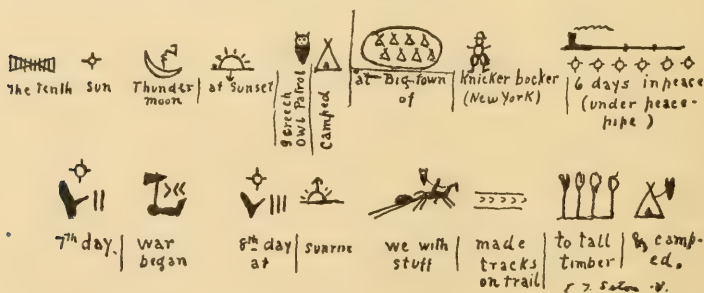 The Tenth Sun Thunder moon at Sunset Screech Owl Patrol Camped at Big town of Knicker bocker (New York) 6 days in peace (under peace-pipe)
7th day. war began 8th day at sunrise we with stuff made tracks on trail to tall timber & camped.
E. T. Seton